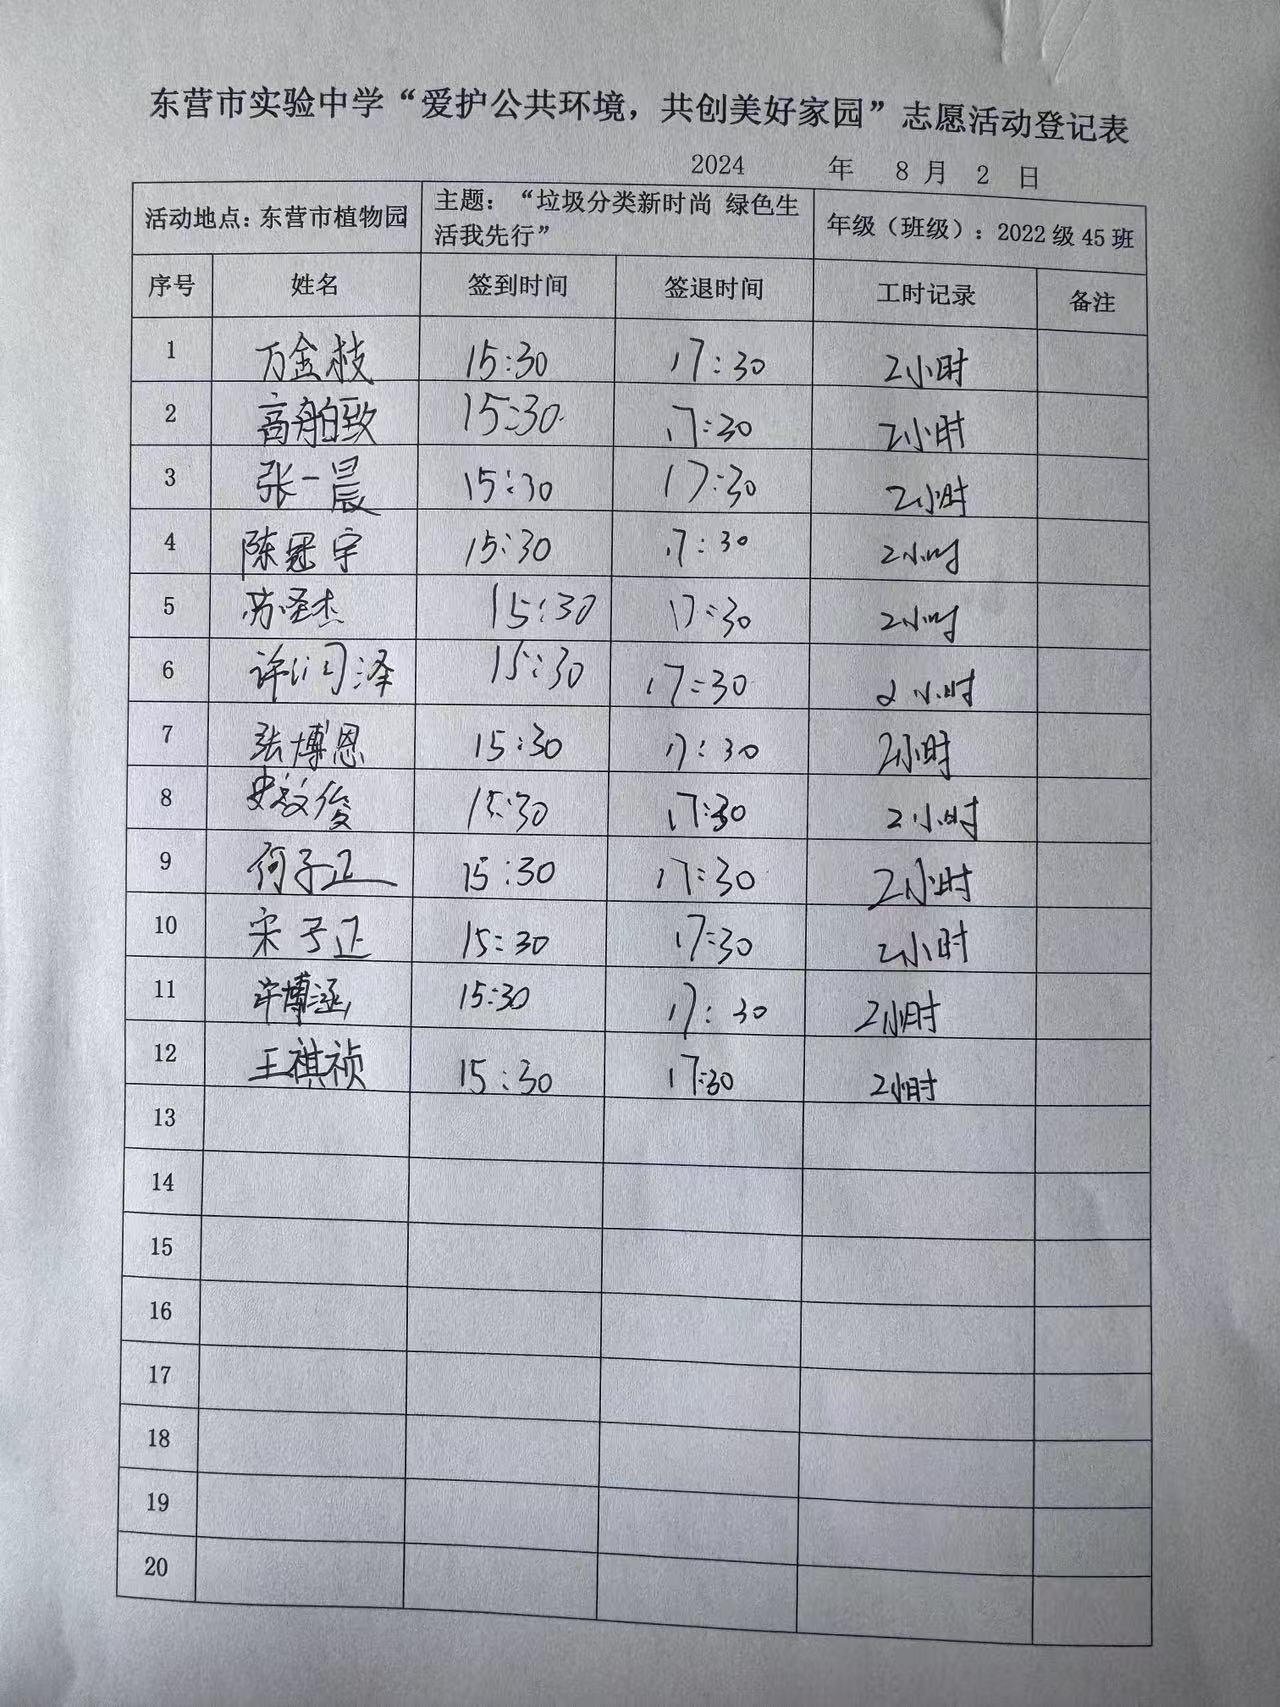 东营市实验中学“爱护公共环境，共创美好家园”志愿活动登记表
2024 年 8 月 2 日
活动地点：东营市植物园 主题：“垃圾分类新时尚 绿色生活我先行” 年级（班级）：2022 级 45 班
序号 姓名 签到时间 签退时间 工时记录 备注
1 万金枝 15:30 17:30 2小时
2 高舶致 15:30 17:30 2小时
3 张一晨 15:30 17:30 2小时
4 陈冠宇 15:30 17:30 2小时
5 苏圣杰 15:30 17:30 2小时
6 许闰泽 15:30 17:30 2小时
7 张博恩 15:30 17:30 2小时
8 15:30 17:30 2小时
9 何子正 15:30 17:30 2小时
10 宋子正 15:30 17:30 2小时
11 许博涵 15:30 17:30 2小时
12 王祺祯 15:30 17:30 2小时
13
14
15
16
17
18
19
20